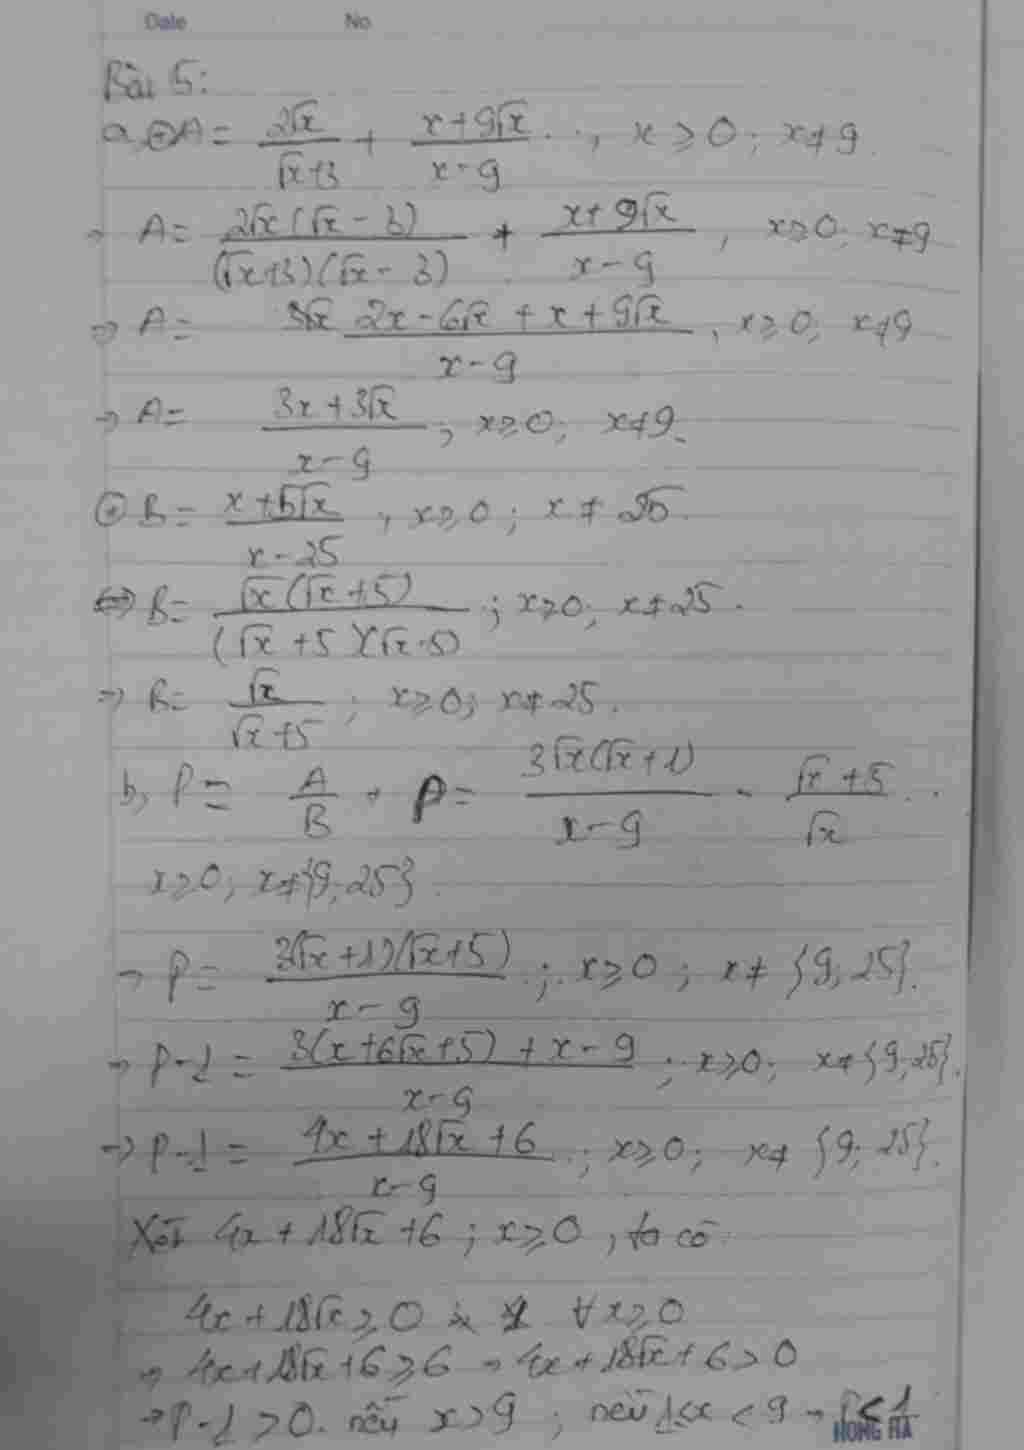 Date No
Bài 5:
a, ⊕ A = 2√x/(√x+3) + (x+9√x)/(x-9) ..., x ≥ 0; x ≠ 9.
→ A = 2√x(√x - 3)/((√x+3)(√x - 3)) + (x+9√x)/(x-9), x ≥ 0; x ≠ 9
=> A = (2x - 6√x + x + 9√x)/(x-9), x ≥ 0; x ≠ 9
→ A = (3x + 3√x)/(x-9); x ≥ 0; x ≠ 9.
⊕ B = (x+5√x)/(x-25), x ≥ 0; x ≠ 25.
<=> B = √x(√x+5)/((√x+5)(√x-5)); x ≥ 0; x ≠ 25.
=> B = √x/(√x+5); x ≥ 0; x ≠ 25.
b, P = A/B → P = 3√x(√x+1)/(x-9) · (√x+5)/√x ..
x ≥ 0; x ≠ {9; 25}.
→ P = 3(√x+1)(√x+5)/(x-9); x ≥ 0; x ≠ {9; 25}.
→ P-1 = (3(x+6√x+5) + x - 9)/(x-9); x ≥ 0; x ≠ {9; 25}.
-> P-1 = (4x + 18√x + 6)/(x-9); x ≥ 0; x ≠ {9; 25}.
Xét 4x + 18√x + 6; x ≥ 0, ta có
4x + 18√x ≥ 0 ∀ x ≥ 0
→ 4x + 18√x + 6 ≥ 6 → 4x + 18√x + 6 > 0
→ P-1 > 0 nếu x > 9; nếu 1 ≤ x < 9 → P < 1
HONG HA